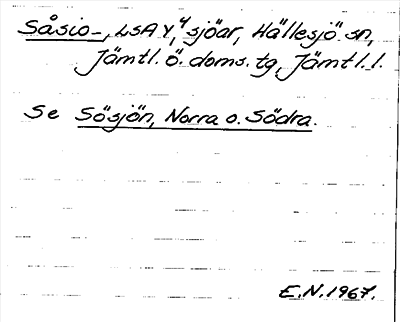 Såsio-, LSA Y,⁴ sjöar, Hällesjö sn,
Jämtl. ö. doms. tg, Jämtl. l.
Se Sösjön, Norra o. Södra.
E.N. 1967.